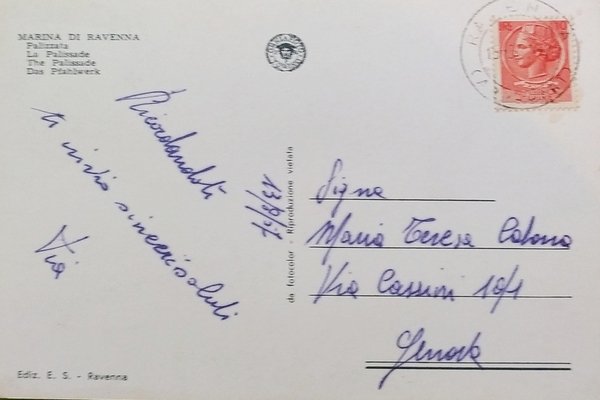 MARINA DI RAVENNA
Palizzata
La Palissade
The Palissade
Das Pfahlwerk
Ricordandoti
ti invio sinceri saluti
da fotocolor - Riproduzione vietata
Sig.na
Maria Teresa
Via Cassini 10/1
Genova
Ediz. E. S. - Ravenna